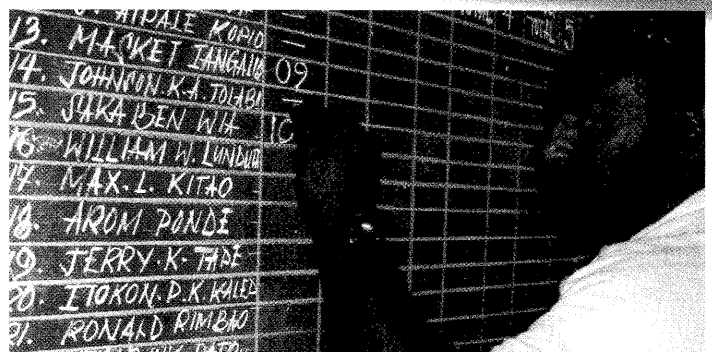 TOTAL 5
AIPALE KOPIO —
13. MASKET IANGALIO —
14. JOHNSON.K.A. TOLABI 09
15. SAKA BEN WIA —
16. WILLIAM W. 10
17. MAX. L. KITAO
18. AROM PONDE
19. JERRY. K. TADE
20. ITOKON. D. K
21. RONALD RIMBAO